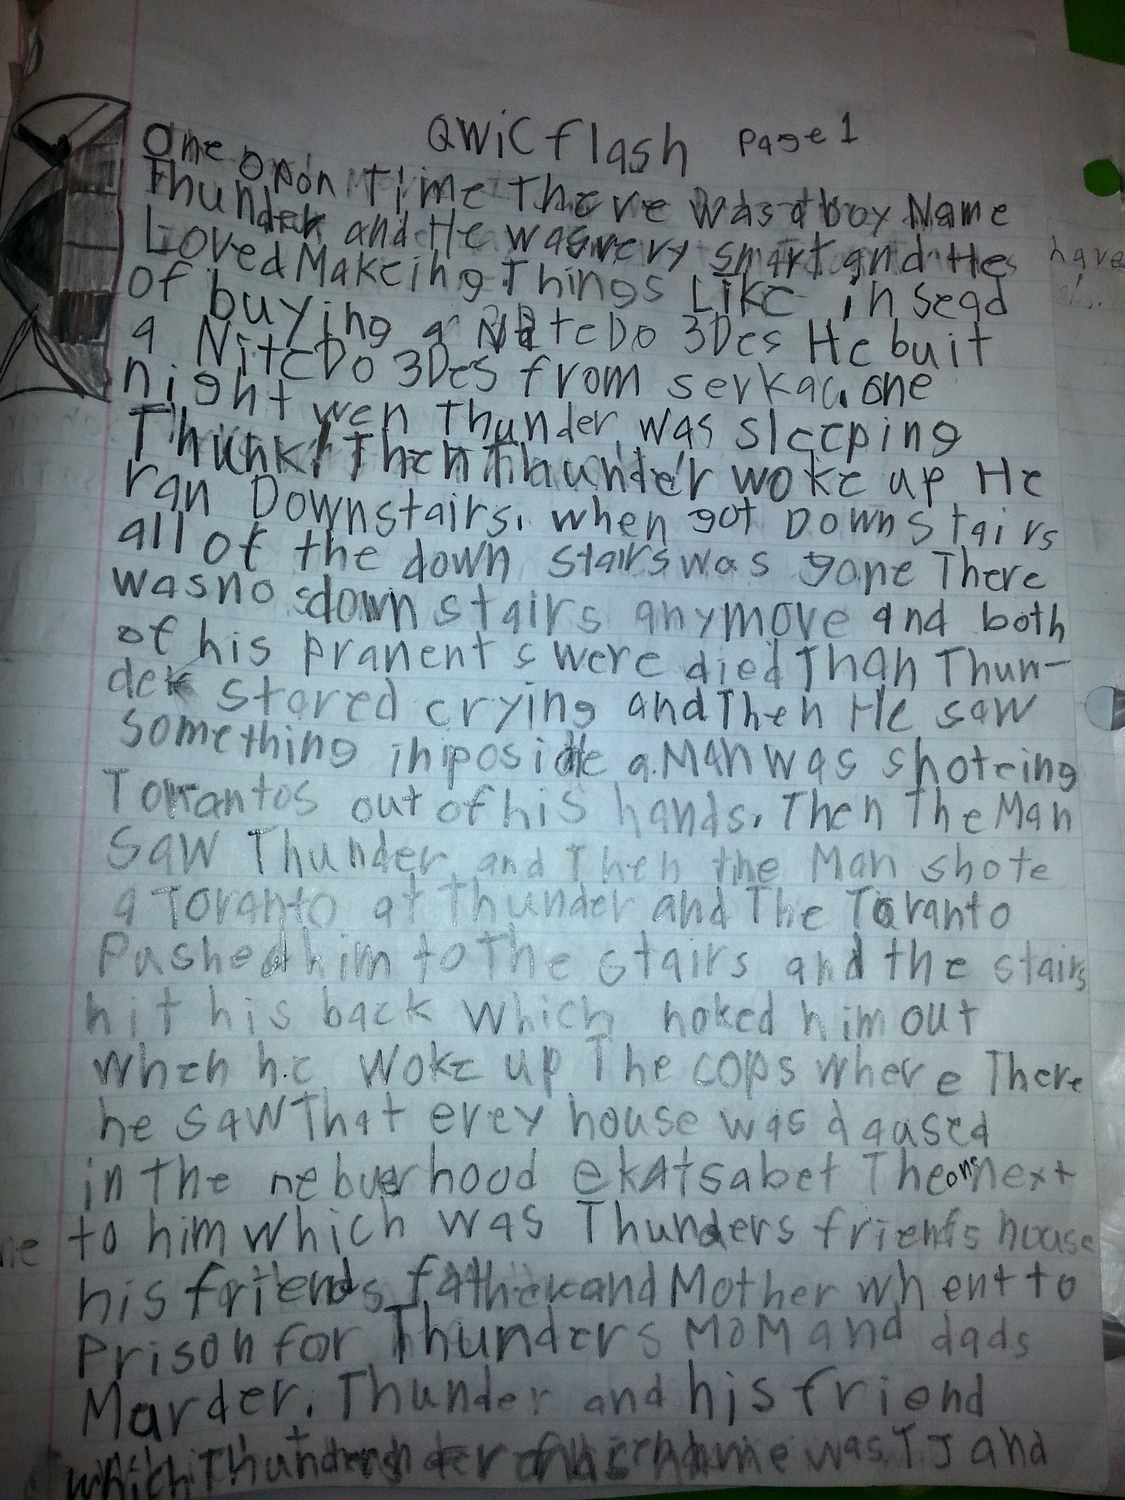 QWiC flash Page 1
One opon time there was a boy Name
Thunder and He was very smart and He
Loved Makeing Things Like insead
of buying a NiteDo 3Des He buit
a NiteDo 3Des from serkac. one
night wen Thunder was sleeping
Thunk! Then Thaunder woke up He
ran Downstairs. when got Downstairs
all of the down stairs was gone There
was no down stairs anymore and both
of his pranents were died Than Thun-
der stared crying and Then He saw
something inposidle a Man was shoteing
Torrantos out of his hands. Then The Man
Saw Thunder and Then the Man shote
a Toranto at thunder and The Toranto
Pushed him to The stairs and the stairs
hit his back which noked him out
when he woke up The cops where There
he saw That erey house was daased
in the nebuerhood ekatsabet The one next
to him which was Thunders friends house
his friends father and Mother whent to
Prison for Thunders MoM and dads
Marder. Thunder and his friend
which name was TJ and
have